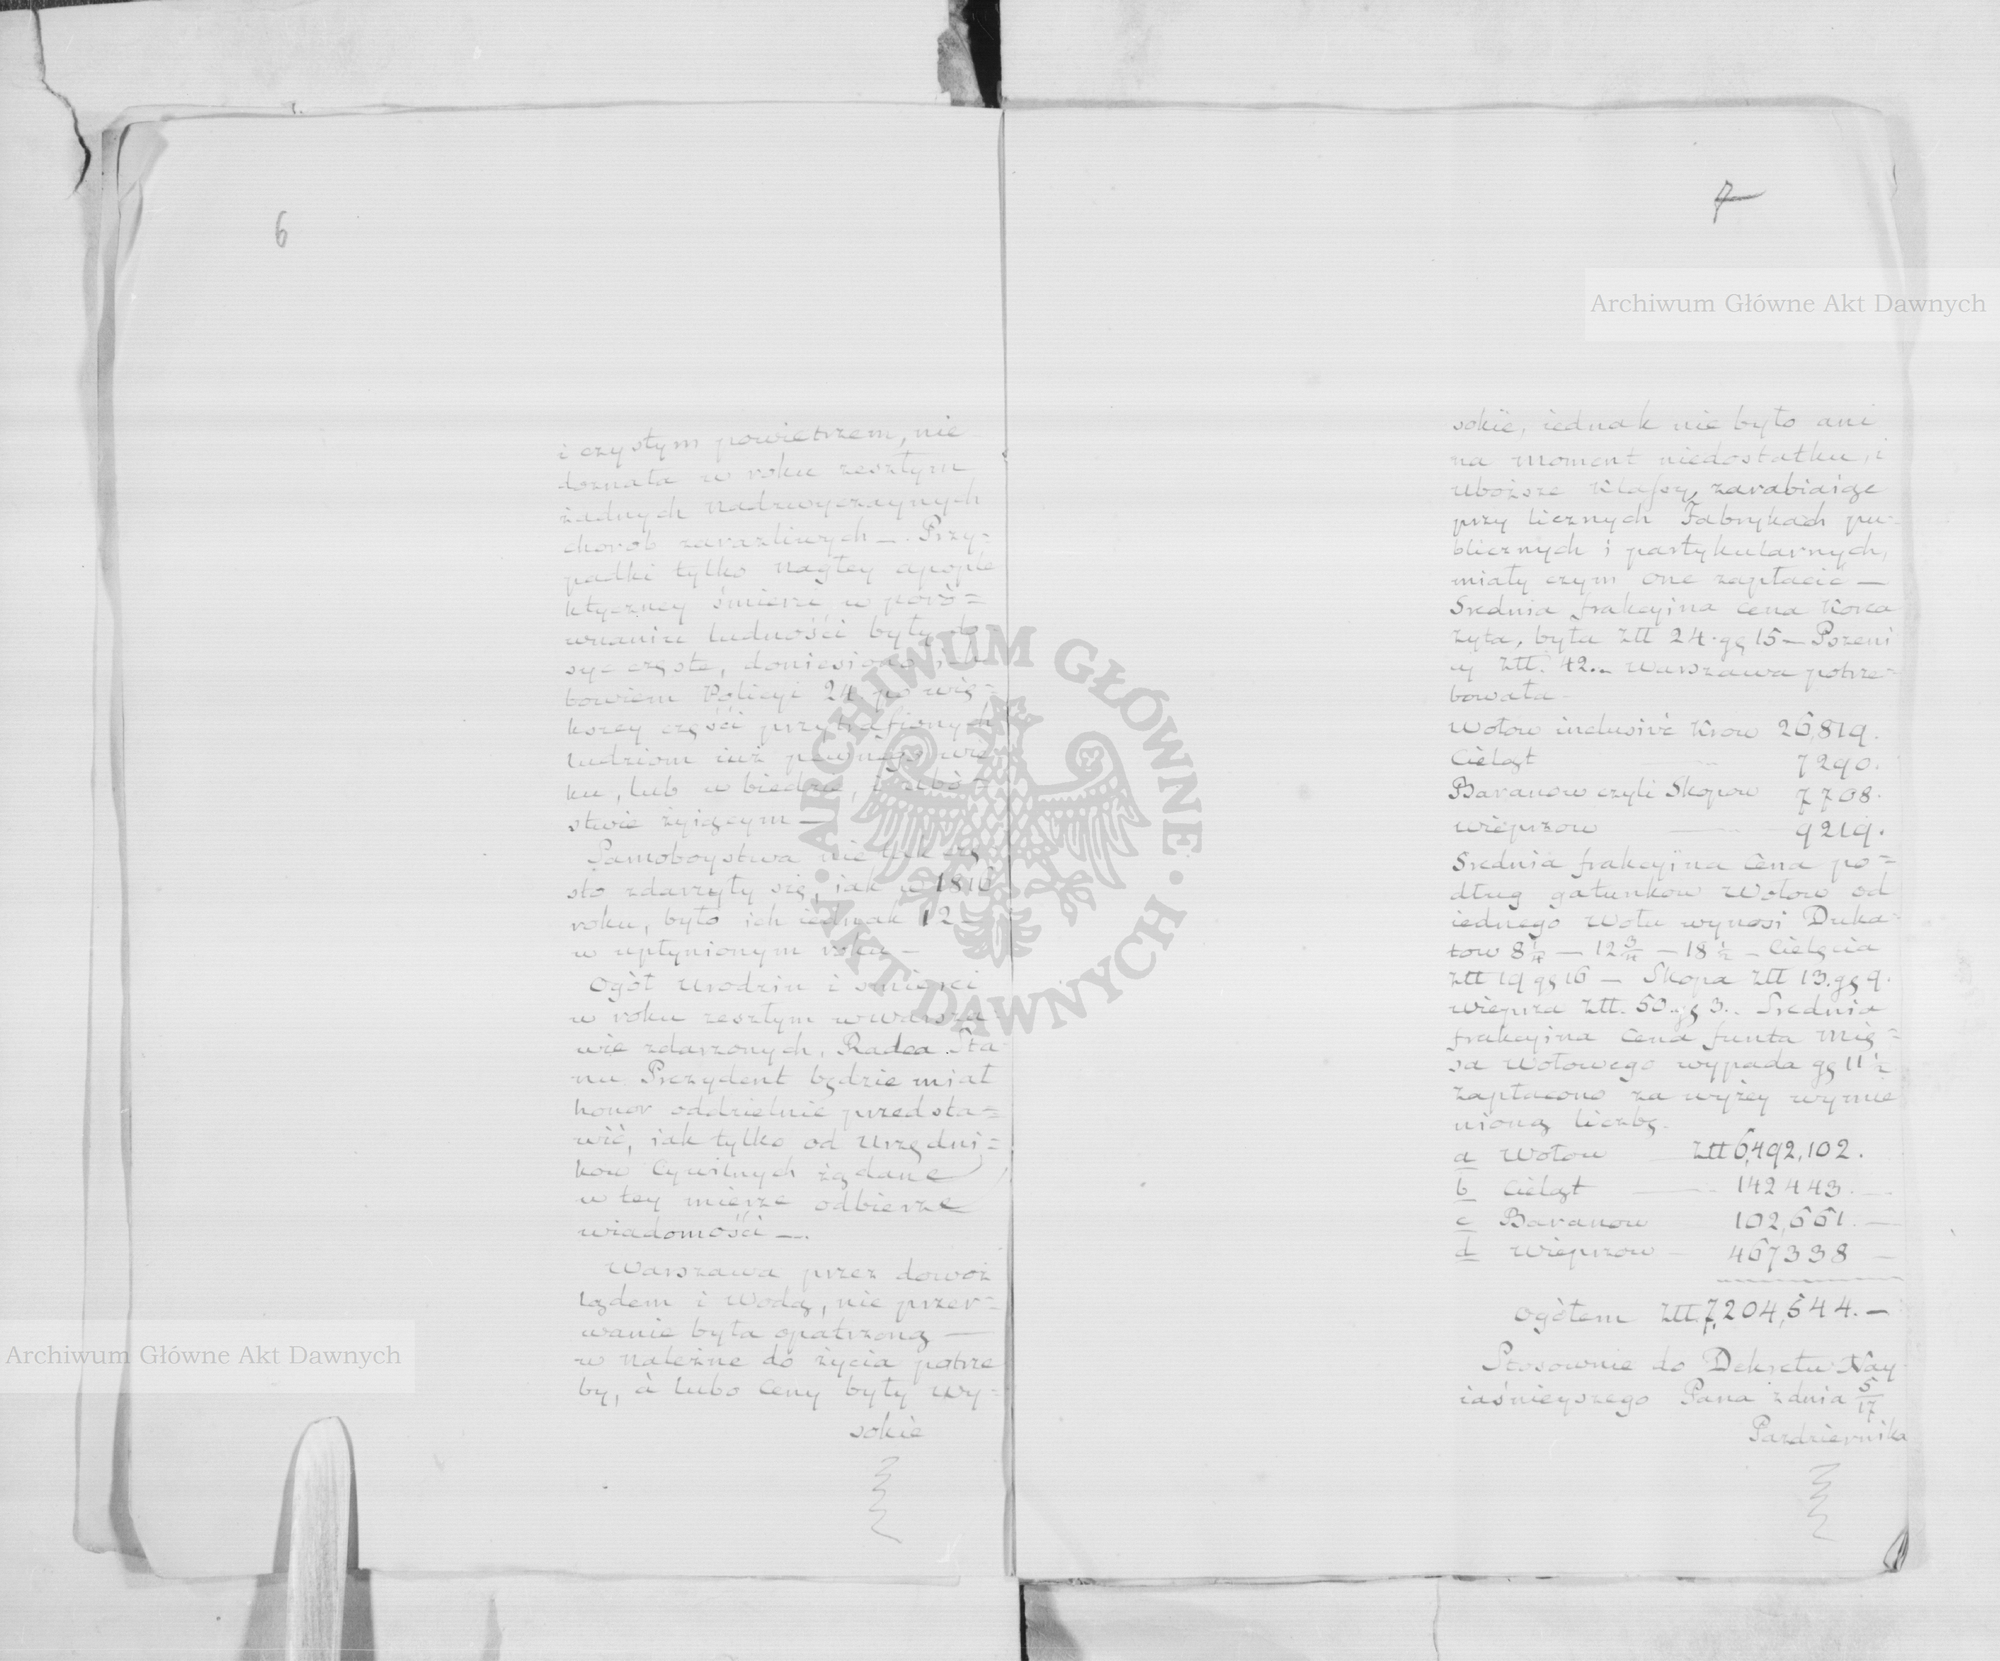 6
i czystym powietrzem, nie
doznała w roku zeszłym
żadnych nadzwyczaynych
chorob zarazliwych —. Przy=
padki tylko nagłey apople
ktyczney śmierci, w poró=
wnaniu ludności były do=
syć częste, doniesiono
bowiem Policyi 24 po wię=
kszey części przytrafionych
ludziom iuż pewnego wie
ku, lub w biedzie, i ubó=
stwie żyiącym —
Samoboystwa nie tak czę
sto zdarzyły się, iak w 1816
roku, było ich iednak 12
w upłynionym roku —
Ogół Urodzin i śmierci
w roku zeszłym w Warsza=
wie zdarzonych, Radca Sta=
nu Prezydent będzie miał
honor oddzielnie przedsta=
wić, iak tylko od Urzędni=
kow Cywilnych żądane
w tey mierze odbierze
wiadomości —.
Warszawa przez dowoz
lądem i wodą, nie przer=
wanie była opatrzoną —
w należne do życia potrze
by, à lubo Ceny były wy=
sokie
7
sokie, iednak nie było ani
na moment niedostatku, i
Uboższe Klassy, zarabiaiąc
przy licznych Fabrykach pu=
blicznych i partykularnych,
miały czym one zapłacić —
Srednia frakcyina Cena Korca
żyta, była Ztt 24. gg 15 — Pszeni
cy Ztt. 42.— Warszawa potrze=
bowała —
Wołow inclusivè Krow 26,819.
Cieląt 7290.
Baranow czyli Skopow 7708.
Wieprzow 9219.
Srednia frakcyina Cena po=
dług gatunkow Wołow od
iednego Wołu wynosi Duka=
tow 8 1/4 — 12 3/4 — 18 1/2 — Cielęcia
Ztt 19 gg 16 — Skopa Ztt 13. gg 9.
Wieprza Ztt. 50. gg 3.. Srednia
frakcyina Cena funta mię=
sa Wołowego wypada gg 11 1/2
Zapłacono za wyżey wymie
nioną liczbę.
a Wołow Ztt 6,492,102.
b Cieląt — 142443. —
c Baranow 102,661. —
d Wieprzow — 467338 —
Ogółem Ztt. 7,204,544. —
Stosownie do Dekretu Nay=
iaśnieyszego Pana z dnia 5/17
Pazdziernika
Archiwum Główne Akt Dawnych
Archiwum Główne Akt Dawnych
ARCHIWUM GŁÓWNE
· AKT DAWNYCH ·